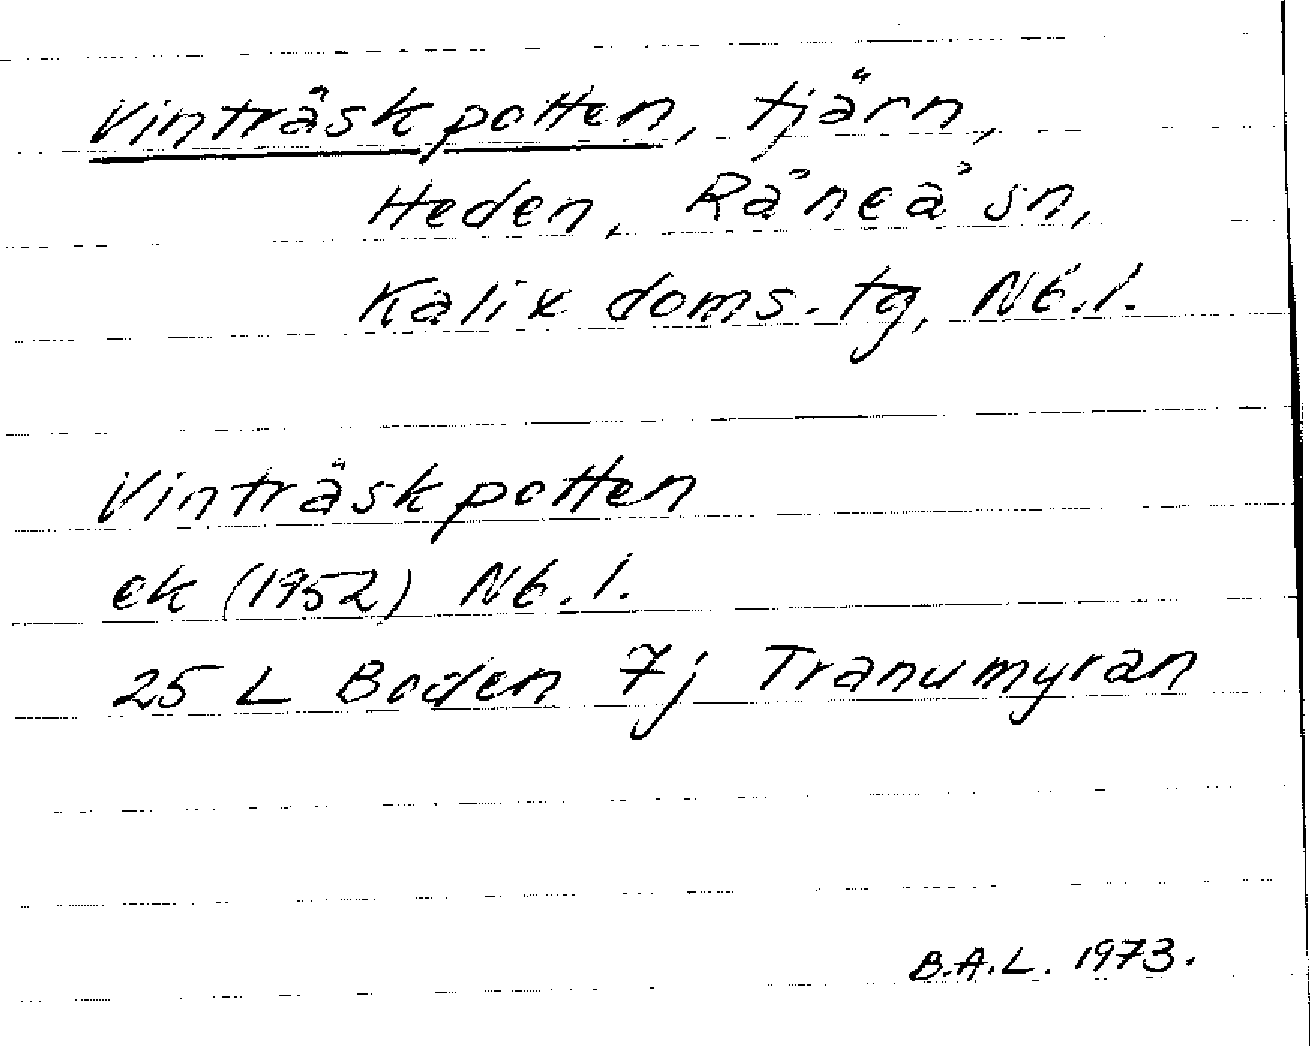 Vinträskpotten, tjärn,
Heden, Råneå sn,
Kalix doms. tg, Nb. l.
Vinträskpotten
ek (1952) Nb. l.
25 L Boden 7j Tranumyran
B.A.L. 1973.